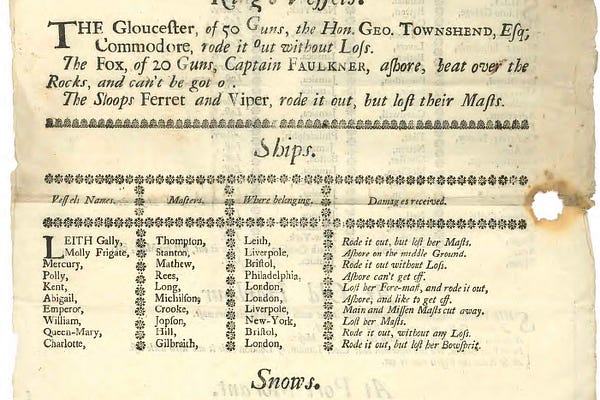 King's Vessels.
THE Gloucester, of 50 Guns, the Hon. GEO. TOWNSHEND, Esq;
Commodore, rode it out without Loss.
The Fox, of 20 Guns, Captain FAULKNER, ashore, beat over the
Rocks, and can't be got o .
The Sloops Ferret and Viper, rode it out, but lost their Masts.
Ships.
Vessels Names. Masters. Where belonging. Damages received.
LEITH Gally, Thompson, Leith, Rode it out, but lost her Masts.
Molly Frigate, Stanton, Liverpole, Ashore on the middle Ground.
Mercury, Mathew, Bristol, Rode it out without Loss.
Polly, Rees, Philadelphia, Ashore can't get off.
Kent, Long, London, Lost her Fore-mast, and rode it out,
Abigail, Michilson, London, Ashore, and like to get off.
Emperor, Crooke, Liverpole, Main and Missen Masts cut away.
William, Jopson, New-York, Lost her Masts.
Queen-Mary, Hill, Bristol, Rode it out, without any Loss.
Charlotte, Gilbraith, London, Rode it out, but lost her Bowsprit.
Snows.